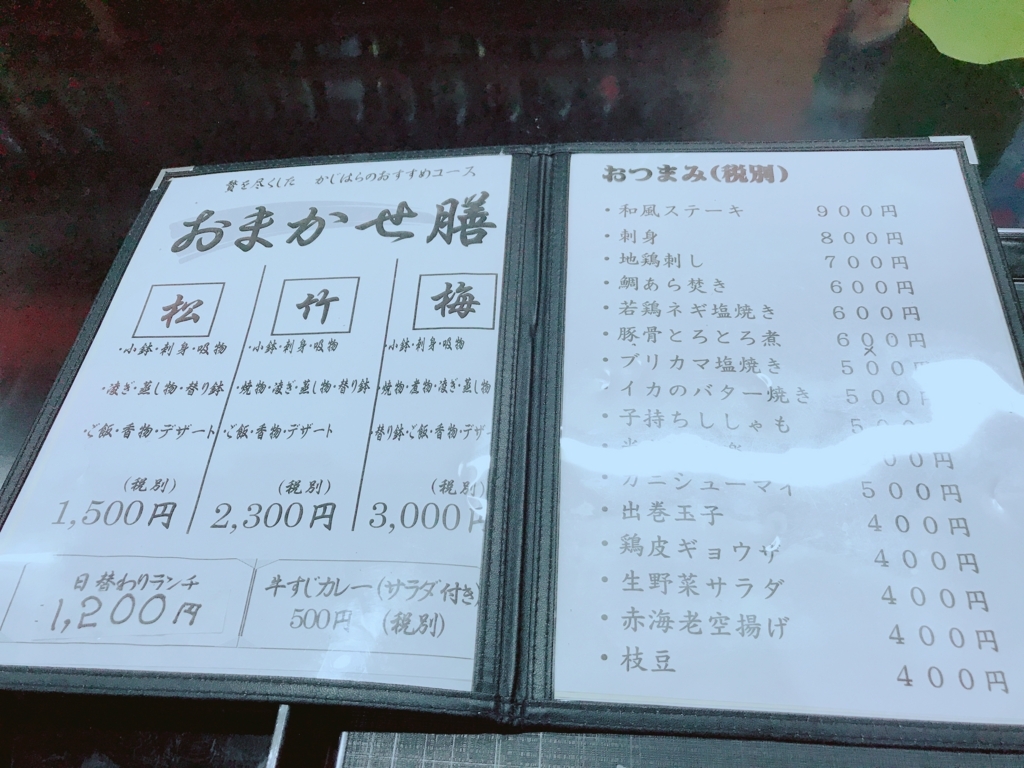 贅を尽くした かじはらのおすすめコース
おまかせ膳
松
・小鉢・刺身・吸物
・凌ぎ・蒸し物・替り鉢
・ご飯・香物・デザート
(税別)
1,500円
竹
・小鉢・刺身・吸物
・焼物・凌ぎ・蒸し物・替り鉢
・ご飯・香物・デザート
(税別)
2,300円
梅
・小鉢・刺身・吸物
・焼物・煮物・凌ぎ・蒸し物
・替り鉢・ご飯・香物・デザー
(税別)
3,000円
日替わりランチ
1,200円
牛すじカレー(サラダ付き)
500円 (税別)
おつまみ(税別)
・和風ステーキ 900円
・刺身 800円
・地鶏刺し 700円
・鯛あら焚き 600円
・若鶏ネギ塩焼き 600円
・豚骨とろとろ煮 600円
・ブリカマ塩焼き 500円
・イカのバター焼き 500円
・子持ちししゃも 500
00円
・カニシューマイ 500円
・出巻玉子 400円
・鶏皮ギョウザ 400円
・生野菜サラダ 400円
・赤海老空揚げ 400円
・枝豆 400円